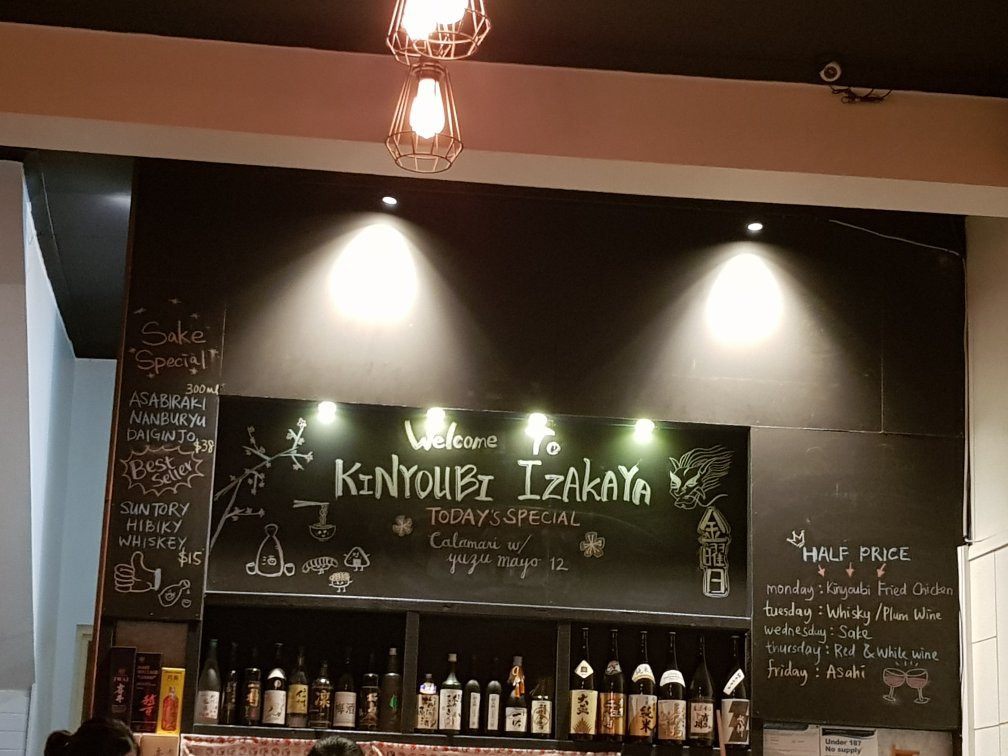 Sake
Special
300ml
ASABIRAKI
NANBURYU
DAIGINJO
$38
Best
Seller
SUNTORY
HIBIKY
WHISKEY
$15
Welcome To
KINYOUBI IZAKAYA
TODAY'S SPECIAL
Calamari w/
yuzu mayo 12
酒
金
曜
日
HALF PRICE
monday : Kinyoubi Fried Chicken
tuesday : Whisky / Plum Wine
wednesday : Sake
thursday : Red & White wine
friday : Asahi
梅酒
純米
Under 18?
No supply